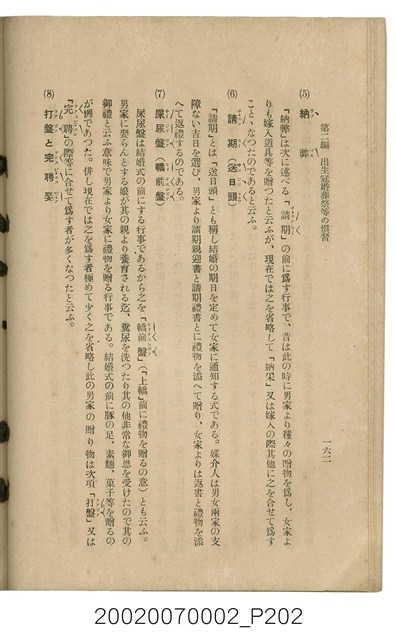 第二編 出生冠婚葬祭等の慣習
一六二
(5) 納幣
「納幣」は次に述べる「請期」の前に爲す行事で、昔は此の時に男家より種々の贈物を爲し、女家よ
りも嫁入道具等を贈つたと云ふが、現在では之を省略して「納采」又は嫁入の際其他に之を合せて爲す
こと、なつたのであると云ふ。
(6) 請期(送日頭)
「請期」とは「送日頭」とも稱し結婚の期日を定めて女家に通知する式である。媒介人は男女兩家の支
障ない吉日を選び、男家より請期親迎書と請期禮書とに禮物を添へて贈り、女家よりは返書と禮物を添
へて返禮するのである。
(7) 屎尿盤(轎前盤)
屎尿盤は結婚式の前にする行事であるから之を「轎前盤(「上轎」前に禮物を贈るの意)とも云ふ。
男家に娶らんとする娘が其の親より養育される迄、糞尿を洗つたり其の他非常な御恩を受けたので其の
御禮と云ふ意味で男家より女家に禮物を贈る行事である。結婚式の前に豚の足、素麵、菓子等を贈るの
が例であつた。併し現在では之を爲す者極めて少く之を省略し此の男家の贈り物は次項「打盤」又は
「完聘」の際等に合せて爲す者が多くなつたと云ふ。
(8) 打盤と完聘娶
20020070002_P202